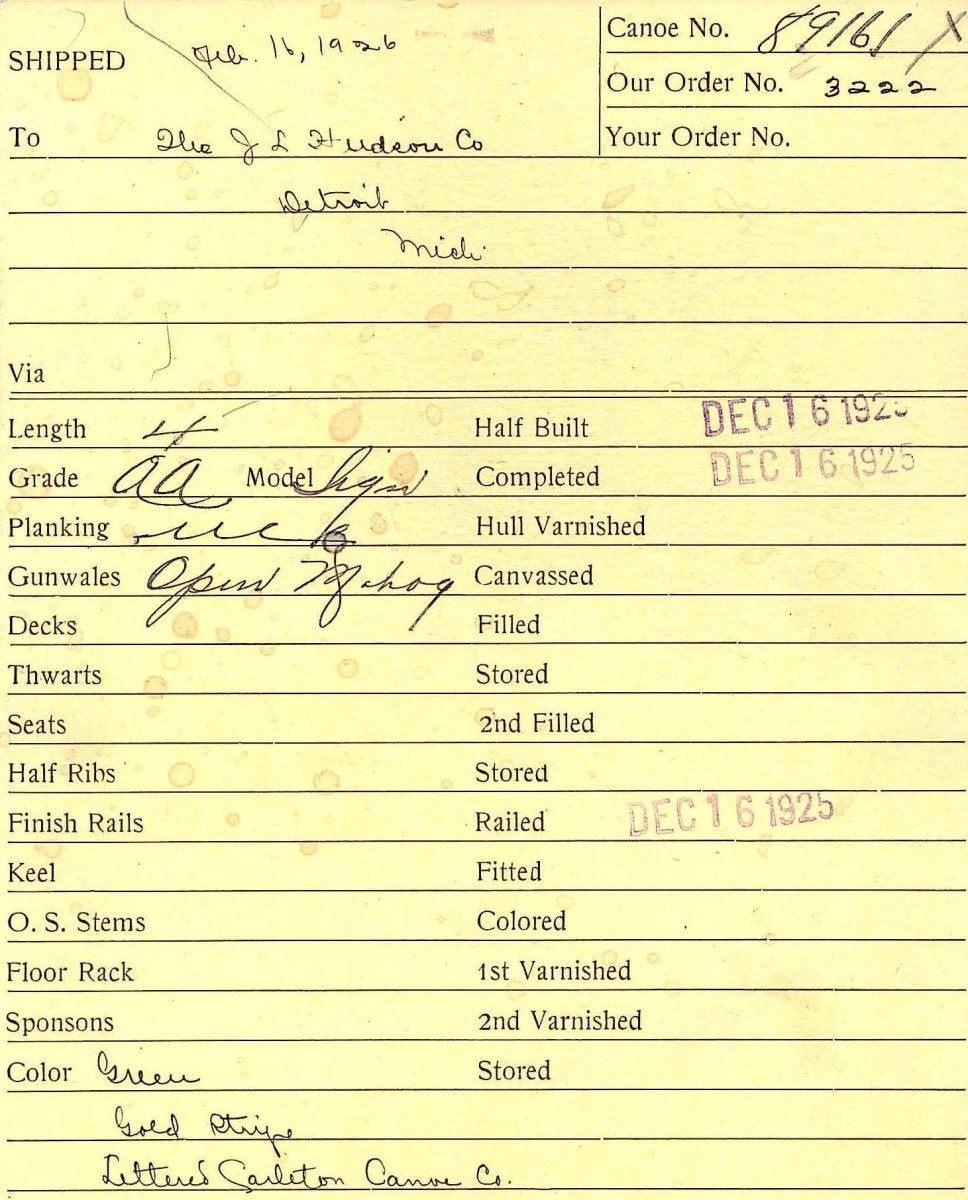 Canoe No. 89161 X
SHIPPED Feb. 16, 1926
Our Order No. 3222
To The J L Hudson Co
Your Order No.
Detroit
Mich.
Via
Length 4 Half Built DEC 16 1925
Grade AA Model Sign Completed DEC 16 1925
Planking Hull Varnished
Gunwales Open Mahog Canvassed
Decks Filled
Thwarts Stored
Seats 2nd Filled
Half Ribs Stored
Finish Rails Railed DEC 16 1925
Keel Fitted
O. S. Stems Colored
Floor Rack 1st Varnished
Sponsons 2nd Varnished
Color Green Stored
Gold Stripe
Lettered Carleton Canoe Co.